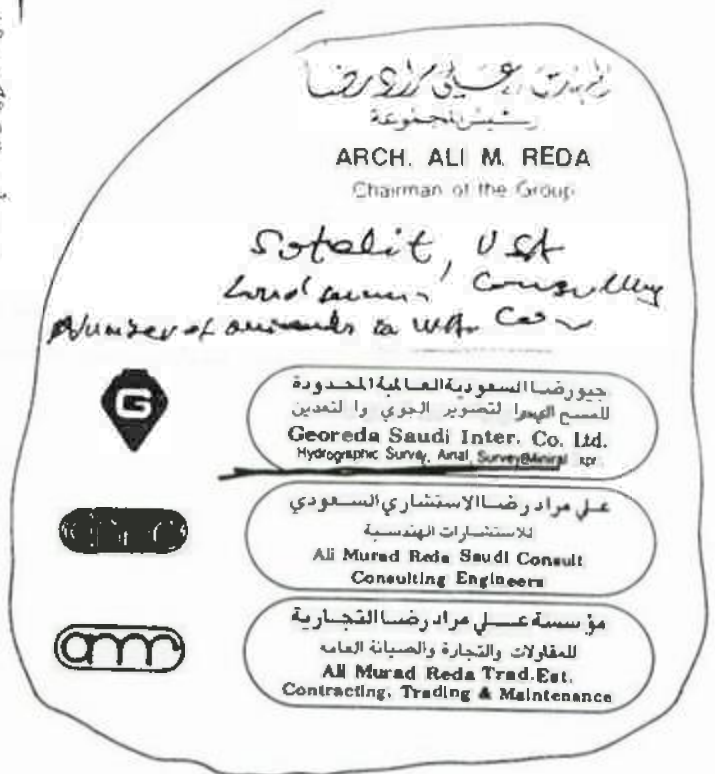 علي مراد رضا
رئيس المجموعة
ARCH. ALI M. REDA
Chairman of the Group
USA
Consulting
G
جيورضا السعودية العالمية المحدودة
للمسح لتصوير الجوي وا لتعدين
Georeda Saudi Inter. Co. Ltd.
Hydrographic Survey, Airial, Survey&Miniral
علي مراد رضا الاستشاري السعودي
للاستشارات الهندسية
Ali Murad Reda Saudi Consult
Consulting Engineers
amr
مؤسسة علي مراد رضا التجارية
للمقاولات والتجارة والصيانة العامه
Ali Murad Reda Trad.Est.
Contracting, Trading & Maintenance